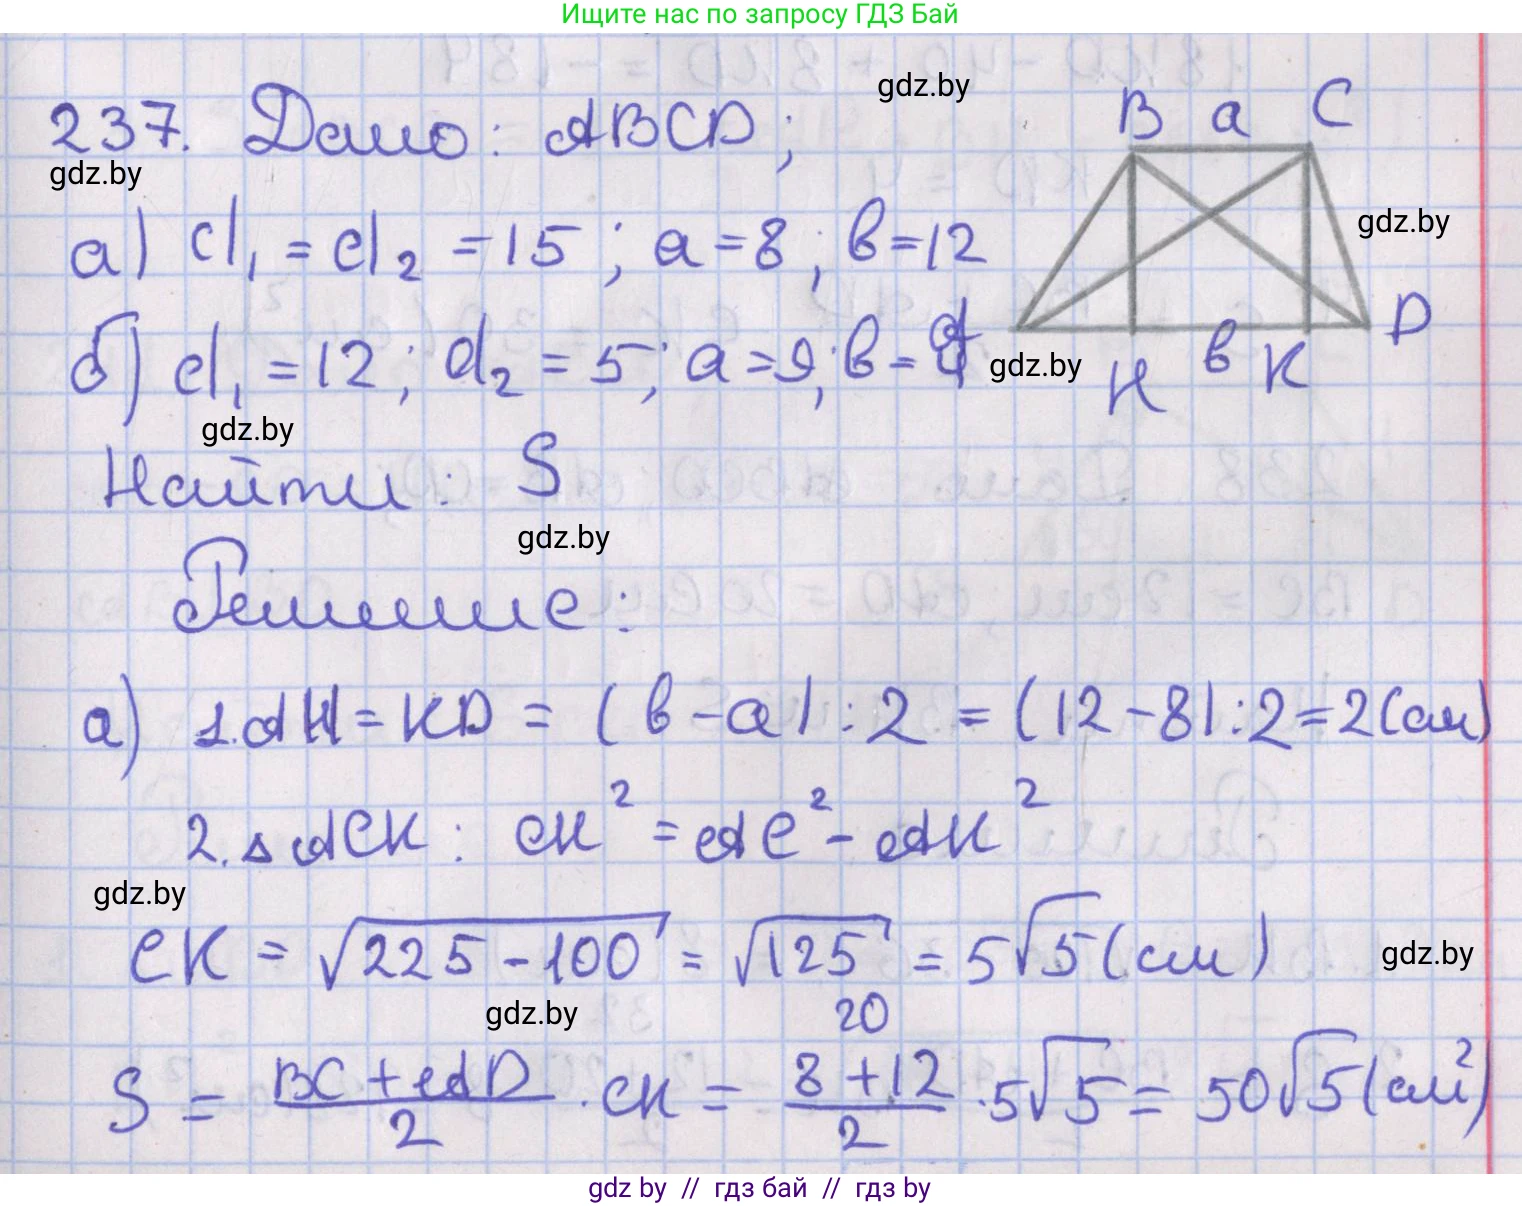 Ищите нас по запросу ГДЗ Бай
237. Дано: ABCD;
gdz.by
gdz.by
B a C
gdz.by
а) d₁ = d₂ = 15; a = 8; b = 12
б) d₁ = 12; d₂ = 5; a = 9; b =
gdz.by
H b K D
gdz.by
Найти: S
gdz.by
Решение:
а) 1. AH = KD = (b - a) : 2 = (12 - 8) : 2 = 2 (см)
2. △ ACK: CK² = AC² - AK²
gdz.by
CK = √225 - 100 = √125 = 5√5 (см)
gdz.by
gdz.by
20
S = BC + AD / 2 · CK = 8 + 12 / 2 · 5√5 = 50√5 (см²)
gdz by // гдз бай // гдз by